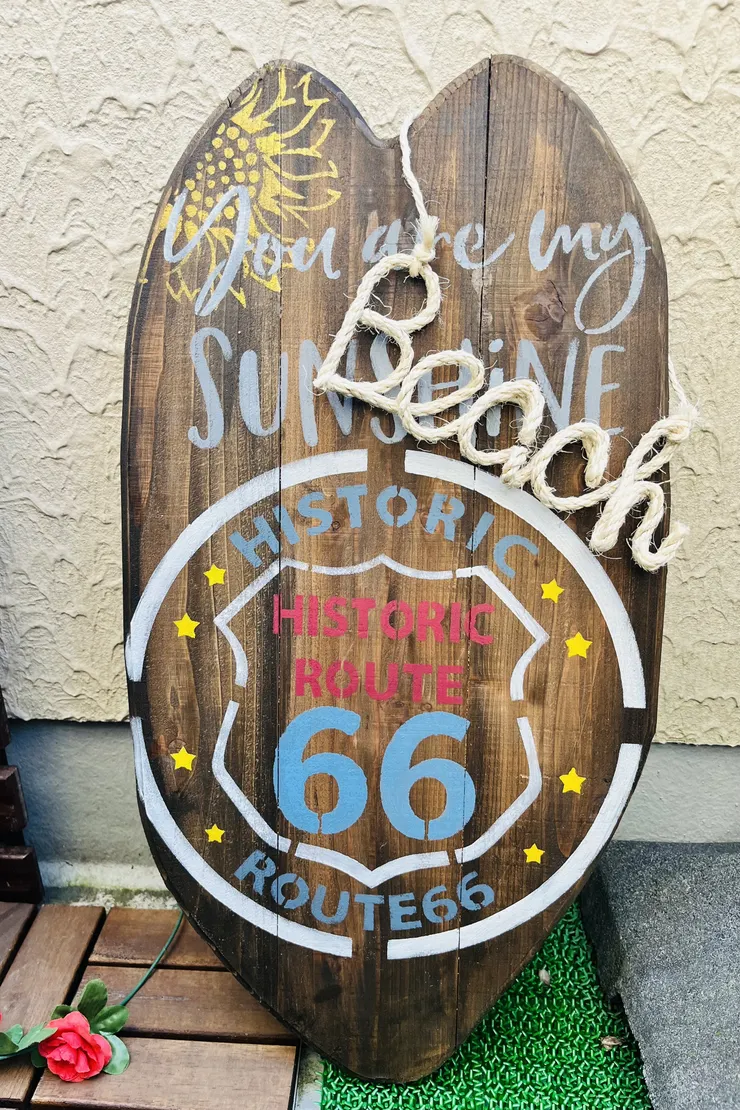 You are my
SUNSHiNE
Beach
HISTORIC
HISTORIC
ROUTE
66
ROUTE66